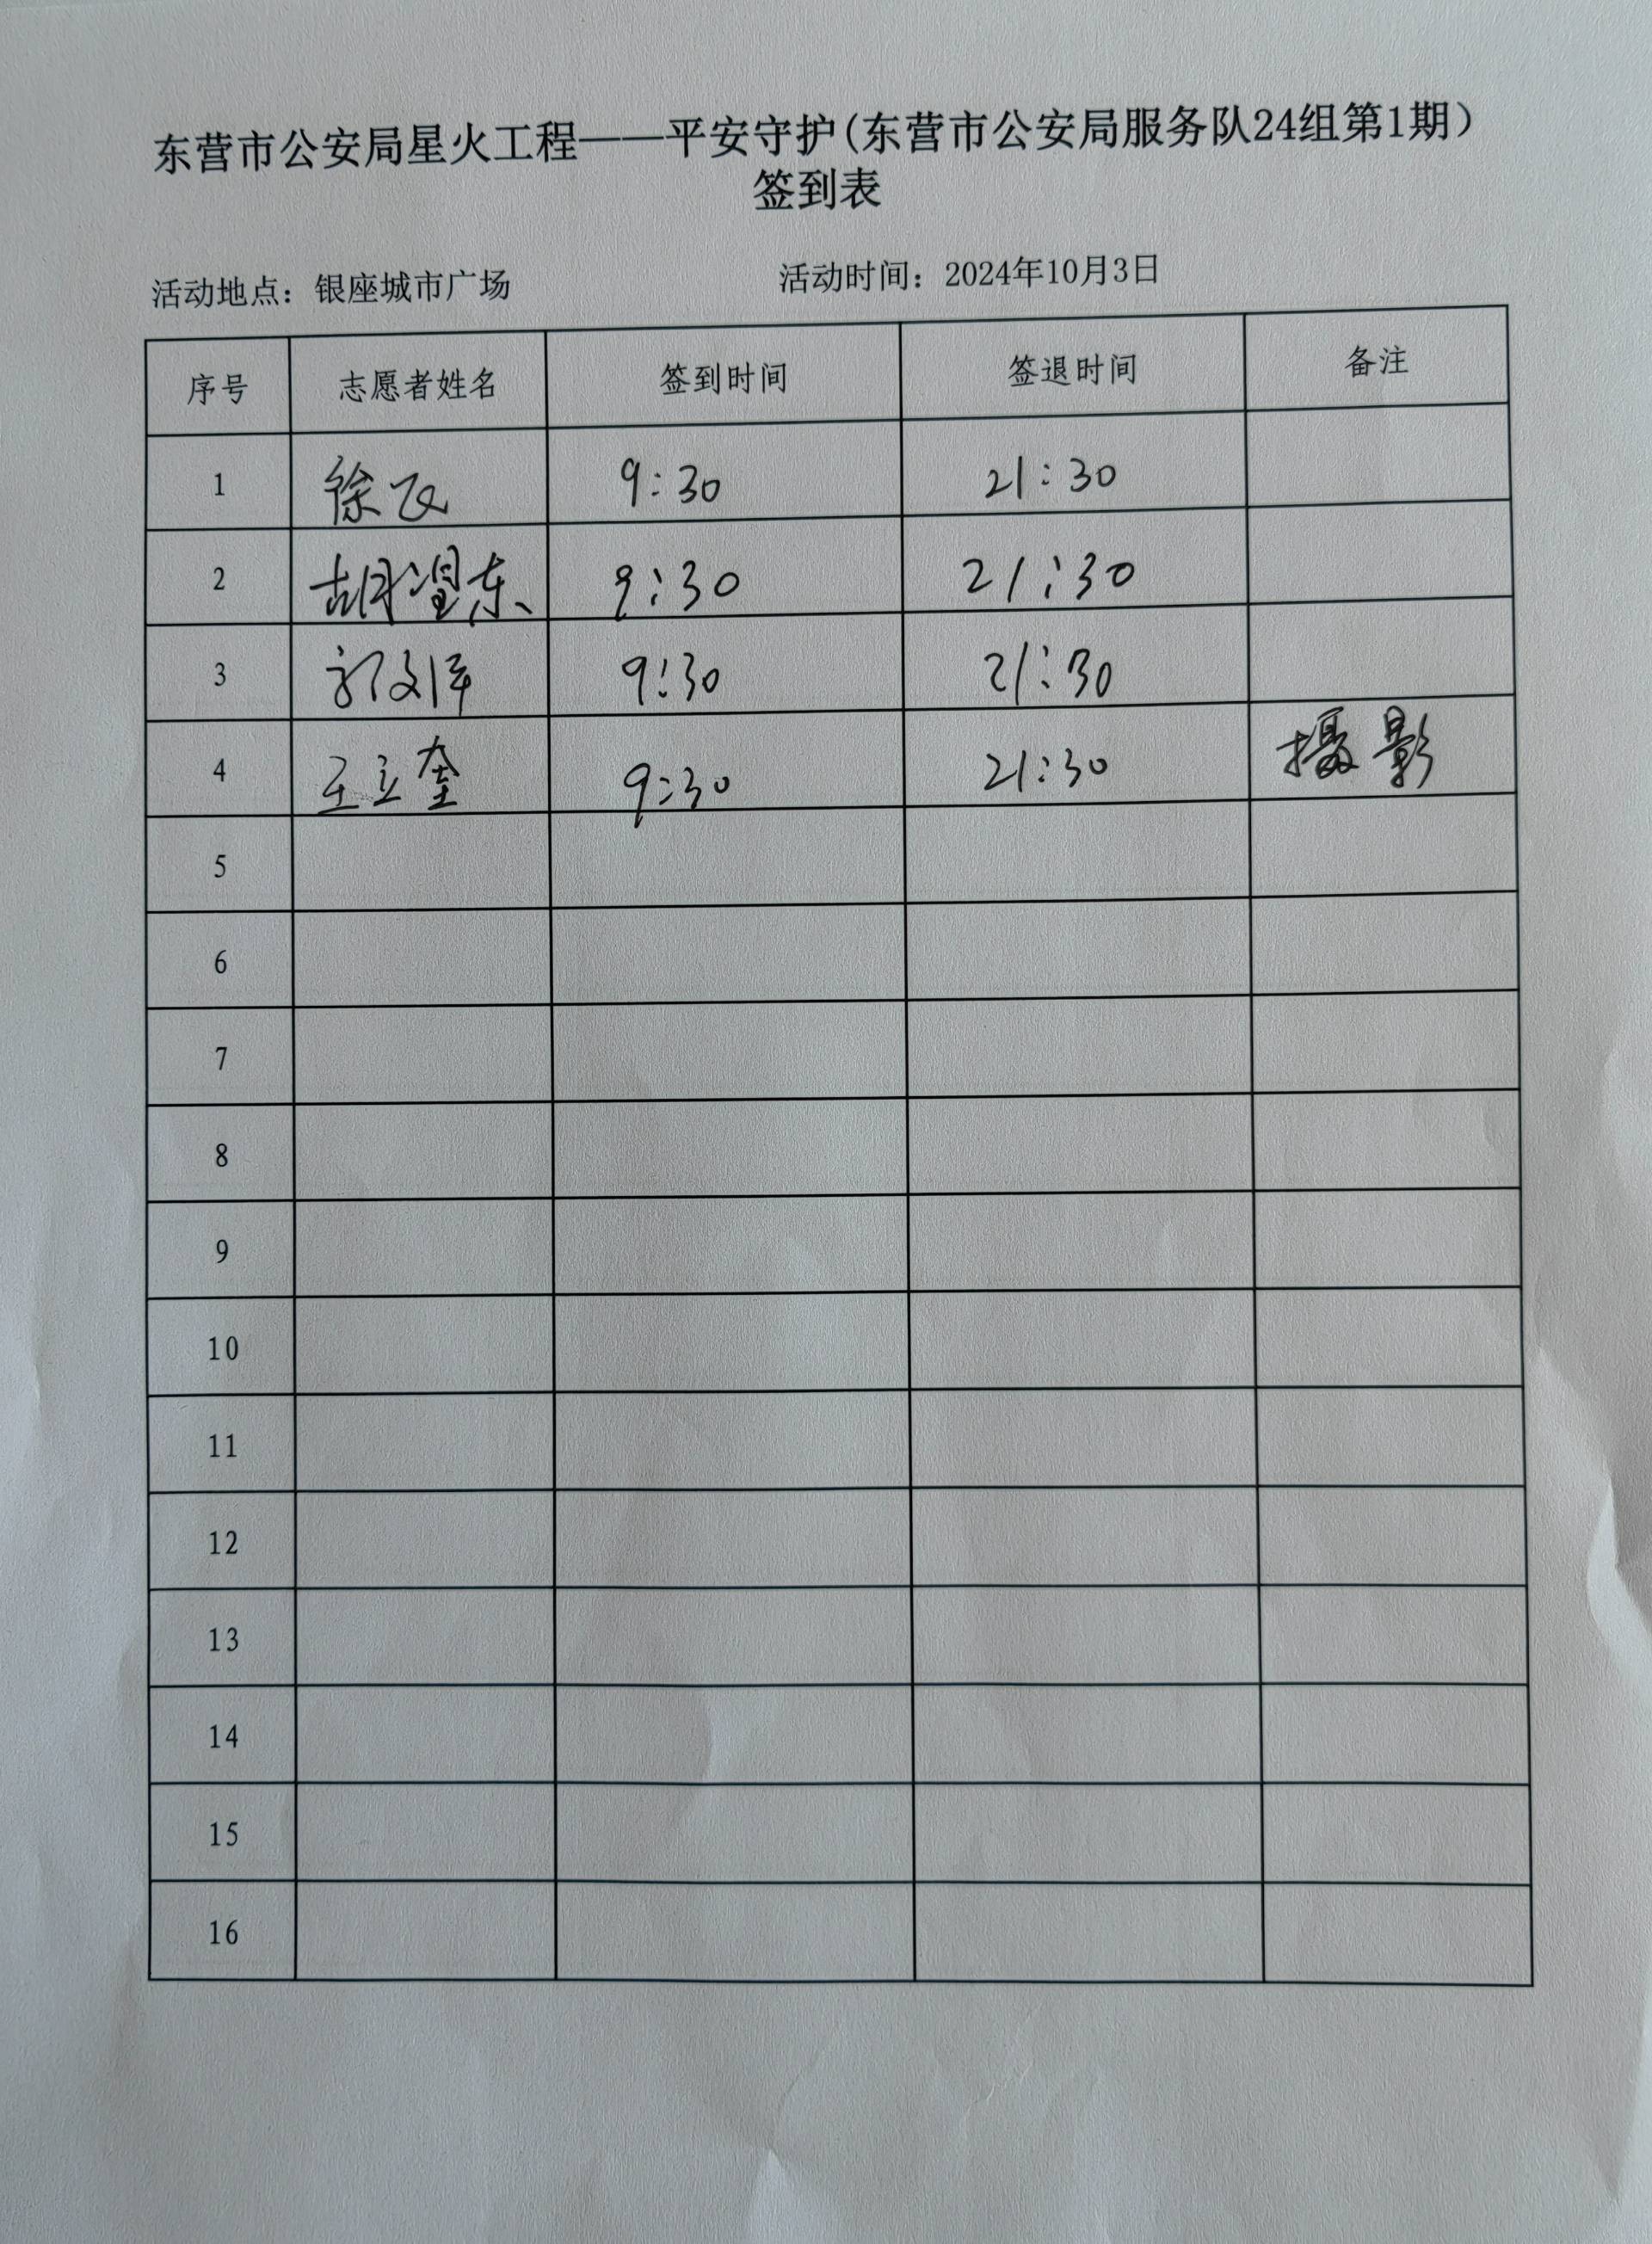 东营市公安局星火工程——平安守护(东营市公安局服务队24组第1期)
签到表
活动地点：银座城市广场 活动时间：2024年10月3日
序号 志愿者姓名 签到时间 签退时间 备注
1 徐飞 9:30 21:30
2 胡涅东 9:30 21:30
3 9:30 21:30
4 王立奎 9:30 21:30 摄影
5
6
7
8
9
10
11
12
13
14
15
16